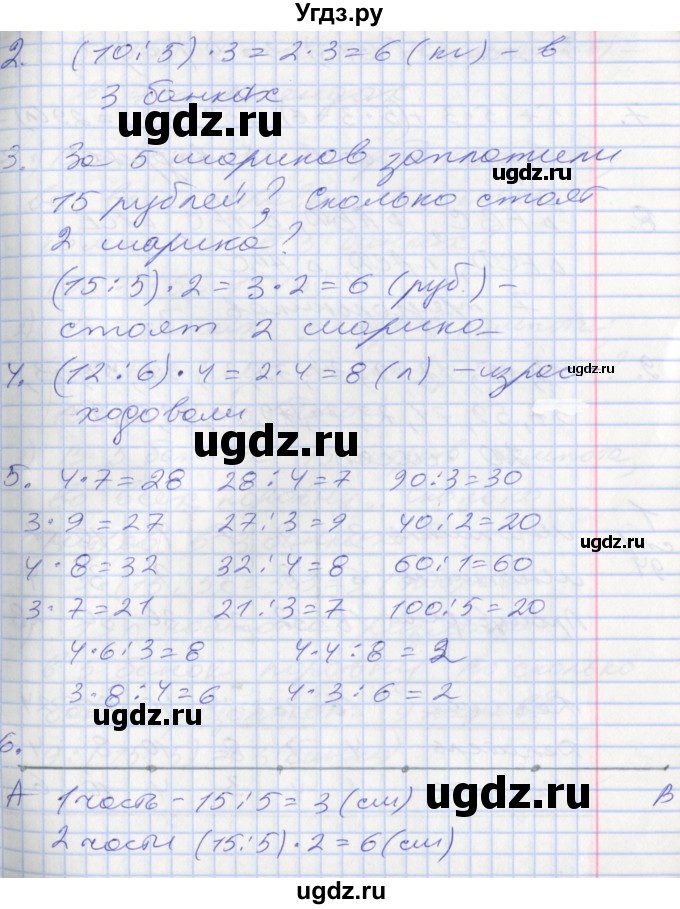 Угдз.ру
2. (10:5)·3=2·3=6 (кг) - в
3 банках
угdz.ru
3. За 5 шариков заплатили
угdz.ru
15 рублей? Сколько стоят
2 шарика?
(15:5)·2=3·2=6 (руб.) -
стоят 2 шарика
угdz.ru
4. (12:6)·4=2·4=8 (л) - израс
ходовали
угdz.ru
5. 4·7=28 28:4=7 90:3=30
3·9=27 27:3=9 40:2=20
угdz.ru
4·8=32 32:4=8 60:1=60
3·7=21 21:3=7 100:5=20
4·6:3=8 4·4:8=2
3·8:4=6 4·3:6=2
угdz.ru
6.
угdz.ru
А 1 часть - 15:5=3 (см) В
2 части (15:5)·2=6 (см)
угdz.ru